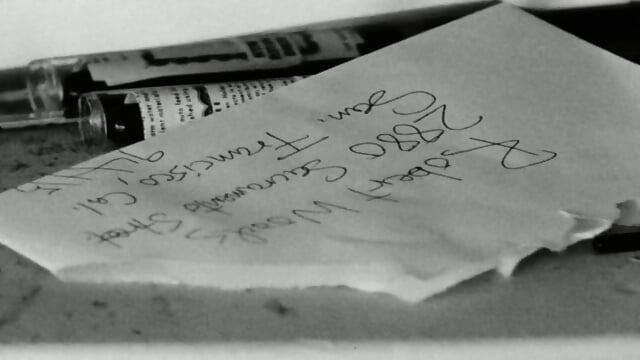 Robert Woods
2880 Sacramento Street
San Francisco, Cal.
94115